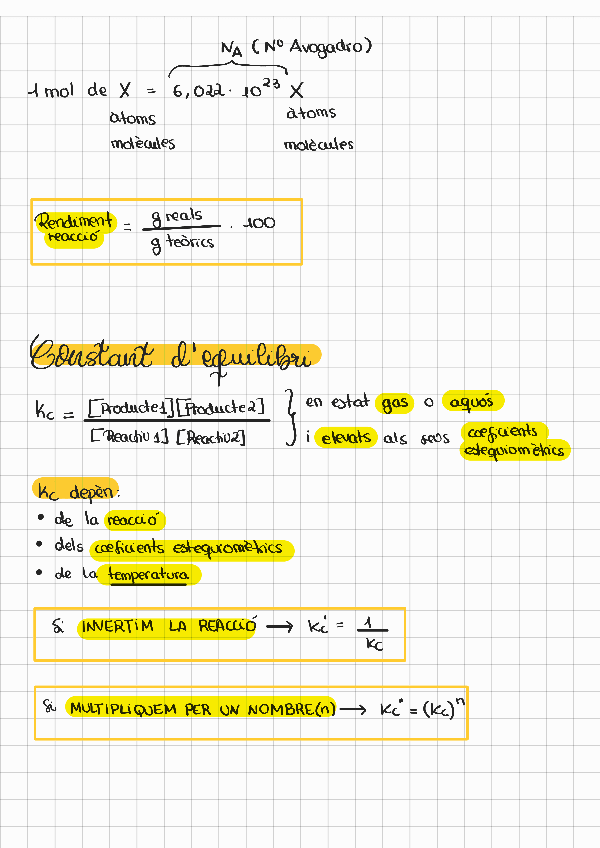 NA (Nº Avogadro)
1 mol de X = 6,022 · 10²³ X
àtoms àtoms
molècules molècules
Rendiment reacció = g reals / g teòrics · 100
Constant d'equilibri
Kc = [Producte1][Producte2] / [Reactiu1] [Reactiu2] } en estat gas o aquós
i elevats als seus coeficients estequiomètrics
Kc depèn:
• de la reacció
• dels coeficients estequiomètrics
• de la temperatura
Si INVERTIM LA REACCIÓ → Kc' = 1 / Kc
Si MULTIPLIQUEM PER UN NOMBRE(n) → Kc" = (Kc)ⁿ